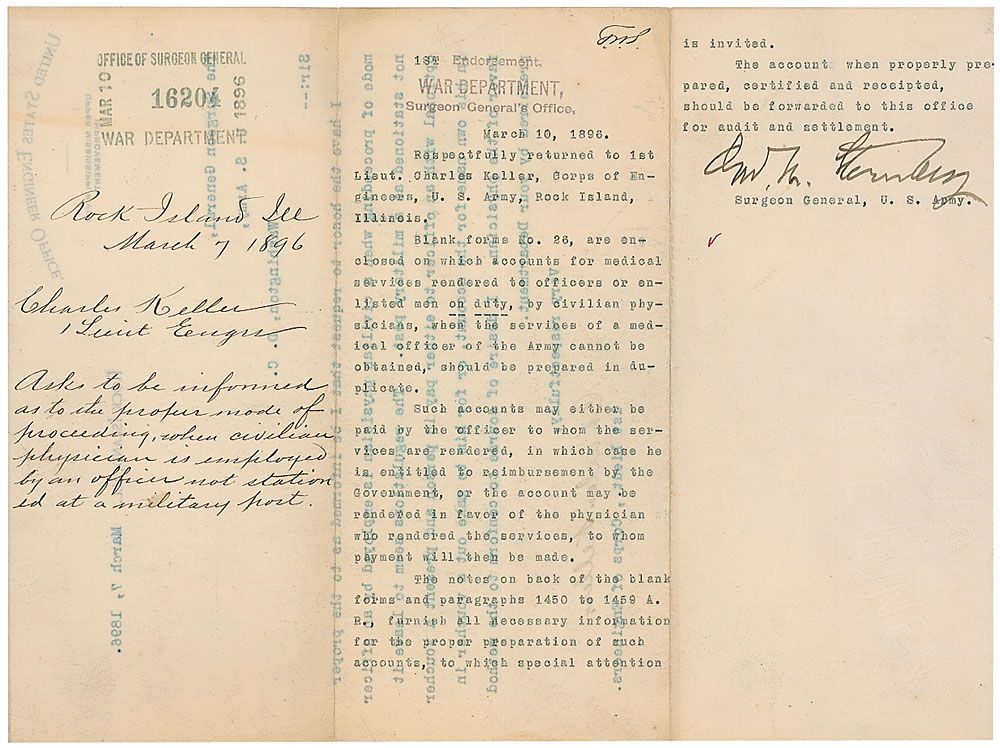 OFFICE OF SURGEON GENERAL
16204
MAR
1896
WAR DEPARTMENT.
Rock Island Ill
March 7 1896
Charles Keller
1 Lieut Engrs
Asks to be informed
as to the proper mode of
proceeding, when civilian
physician is employed
by an officer not station
ed at a military post.
1ST Endorsement.
WAR DEPARTMENT,
Surgeon General's Office,
March 10, 1896.
Respectfully returned to 1st
Lieut. Charles Keller, Corps of En-
gineers, U. S. Army, Rock Island,
Illinois.
Blank forms No. 26, are en-
closed on which accounts for medical
services rendered to officers or en-
listed men on duty, by civilian phy-
sicians, when the services of a med-
ical officer of the Army cannot be
obtained, should be prepared in du-
plicate.
Such accounts may either be
paid by the officer to whom the ser-
vices are rendered, in which case he
is entitled to reimbursement by the
Government, or the account may be
rendered in favor of the physician
who rendered the services, to whom
payment will then be made.
The notes on back of the blank
forms and paragraphs 1450 to 1459 A.
R., furnish all necessary information
for the proper preparation of such
accounts, to which special attention
is invited.
The account when properly pre-
pared, certified and receipted,
should be forwarded to this office
for audit and settlement.
Geo. M. Sternberg
Surgeon General, U. S. Army.